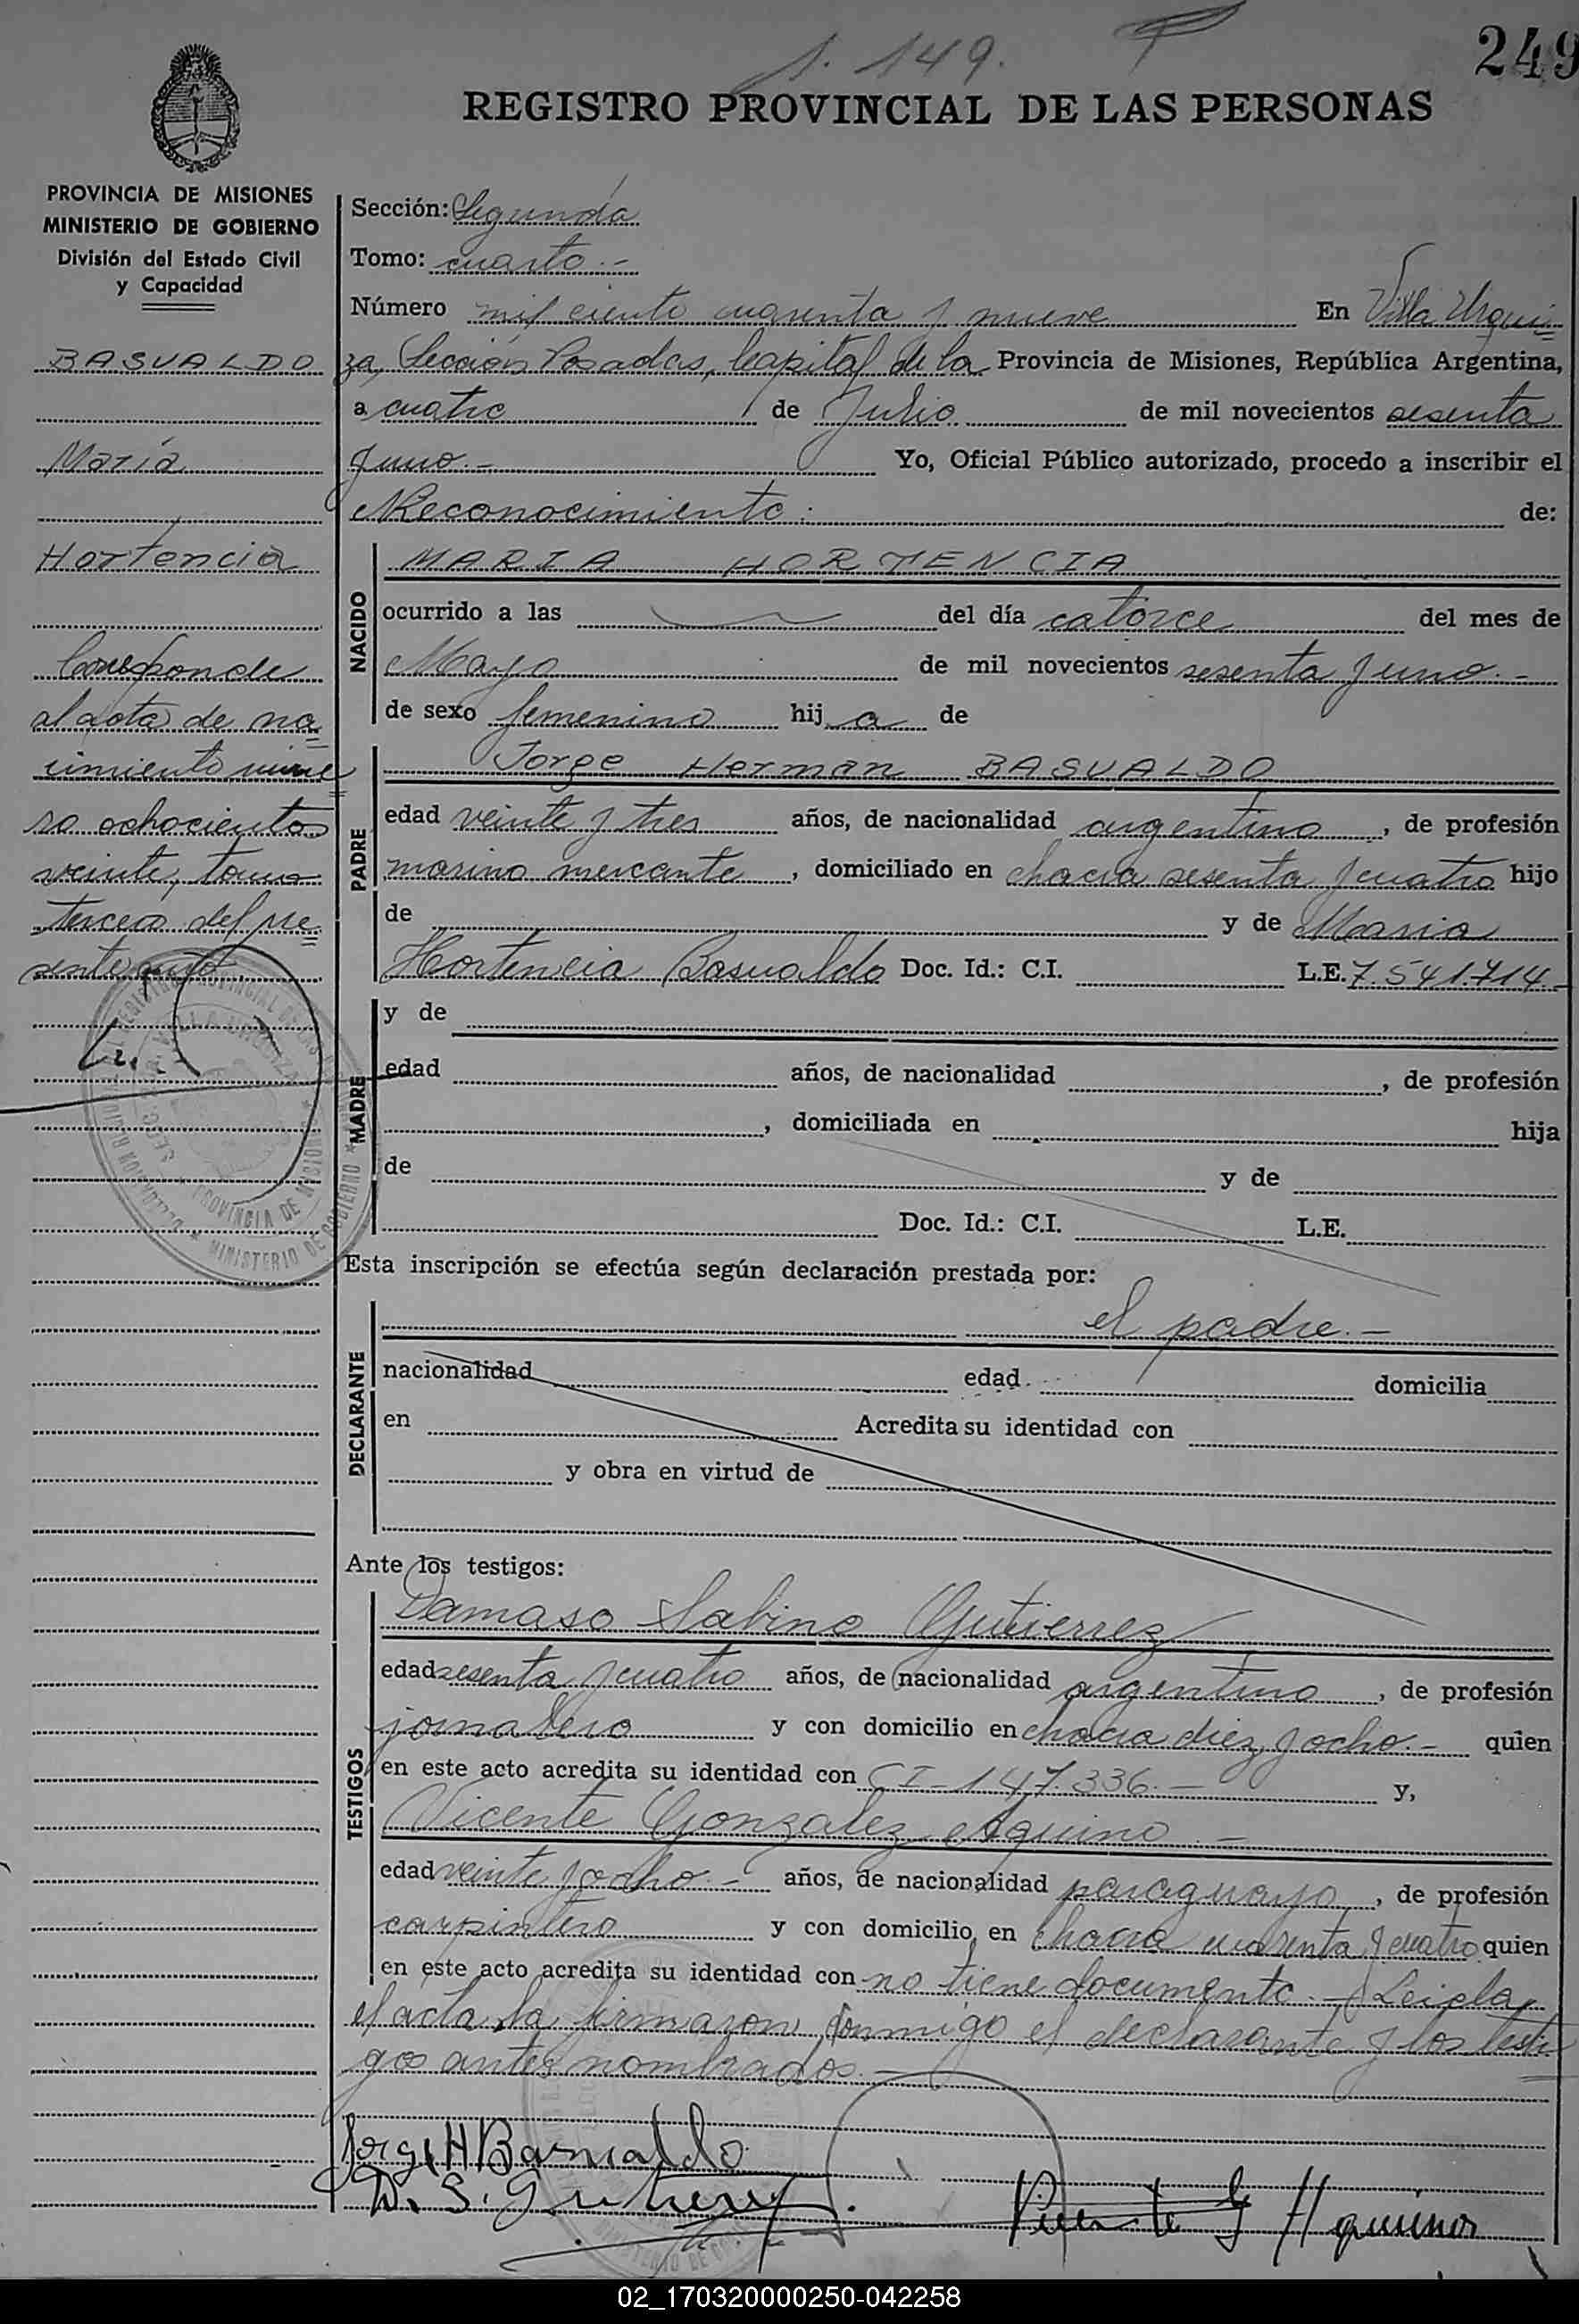 1.149.
249
REGISTRO PROVINCIAL DE LAS PERSONAS
PROVINCIA DE MISIONES
MINISTERIO DE GOBIERNO
División del Estado Civil
y Capacidad
BASUALDO
María
Hortencia
Corresponde
al acta de na
cimiento nume
ro ochocientos
veinte, tomo
tercero del pre
sente año.
Sección: Segunda
Tomo: cuarto.-
Número mil ciento cuarenta y nueve En Villa Urqui
za, Sección Posadas, Capital de la Provincia de Misiones, República Argentina,
a cuatro de Julio de mil novecientos sesenta
y uno.- Yo, Oficial Público autorizado, procedo a inscribir el
Reconocimiento: de:
NACIDO
MARIA HORTENCIA
ocurrido a las del día catorce del mes de
Mayo de mil novecientos sesenta y uno.-
de sexo femenino hij a de
PADRE
Jorge Herman BASUALDO
edad veinte y tres años, de nacionalidad argentino, de profesión
marino mercante, domiciliado en chacra sesenta y cuatro hijo
de y de Maria
Hortencia Basualdo Doc. Id.: C.I. L.E. 7.541.714.-
MADRE
y de
edad años, de nacionalidad , de profesión
, domiciliada en hija
de y de
Doc. Id.: C.I. L.E.
Esta inscripción se efectúa según declaración prestada por:
DECLARANTE
el padre.-
nacionalidad edad domicilia
en Acredita su identidad con
y obra en virtud de
Ante los testigos:
TESTIGOS
Damaso Sabino Gutierrez
edad sesenta y cuatro años, de nacionalidad argentino, de profesión
jornalero y con domicilio en chacra diez y ocho.- quien
en este acto acredita su identidad con CI-147.336.- y,
Vicente Gonzalez Aquino.-
edad veinte y ocho.- años, de nacionalidad paraguayo, de profesión
carpintero y con domicilio en chacra cuarenta y cuatro quien
en este acto acredita su identidad con no tiene documento.- Leida
el acta la firmaron conmigo el declarante y los testi
gos antes nombrados.-
Jorge H Basualdo
D. S. Gutierrez
Vicente G Aquino
02_170320000250-042258